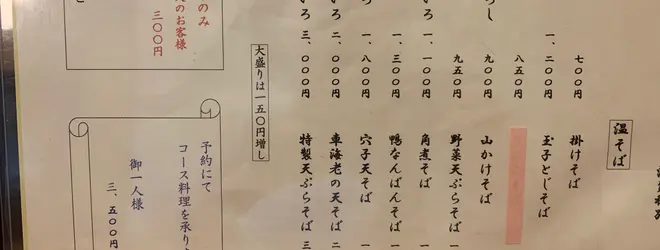 七〇〇円
一、二〇〇円
八五〇円
らし 九〇〇円
九五〇円
いろ 一、一〇〇円
一、三〇〇円
一、八〇〇円
いろ 二、〇〇〇円
いろ 三、〇〇〇円
大盛りは一五〇円増し
のみ
のお客様
三〇〇円
温そば
掛けそば
玉子とじそば
山かけそば
野菜天ぷらそば 一
角煮そば
鴨なんばんそば 一
穴子天そば 一
車海老の天そば 二
特製天ぷらそば 三
予約にて
コース料理を承り
御一人様
三、五〇〇円